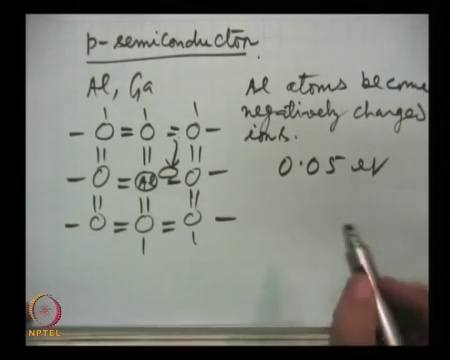 p-semiconductor
Al, Ga
Al atoms become
negatively charged
ions.
0.05 eV
Al
NPTEL